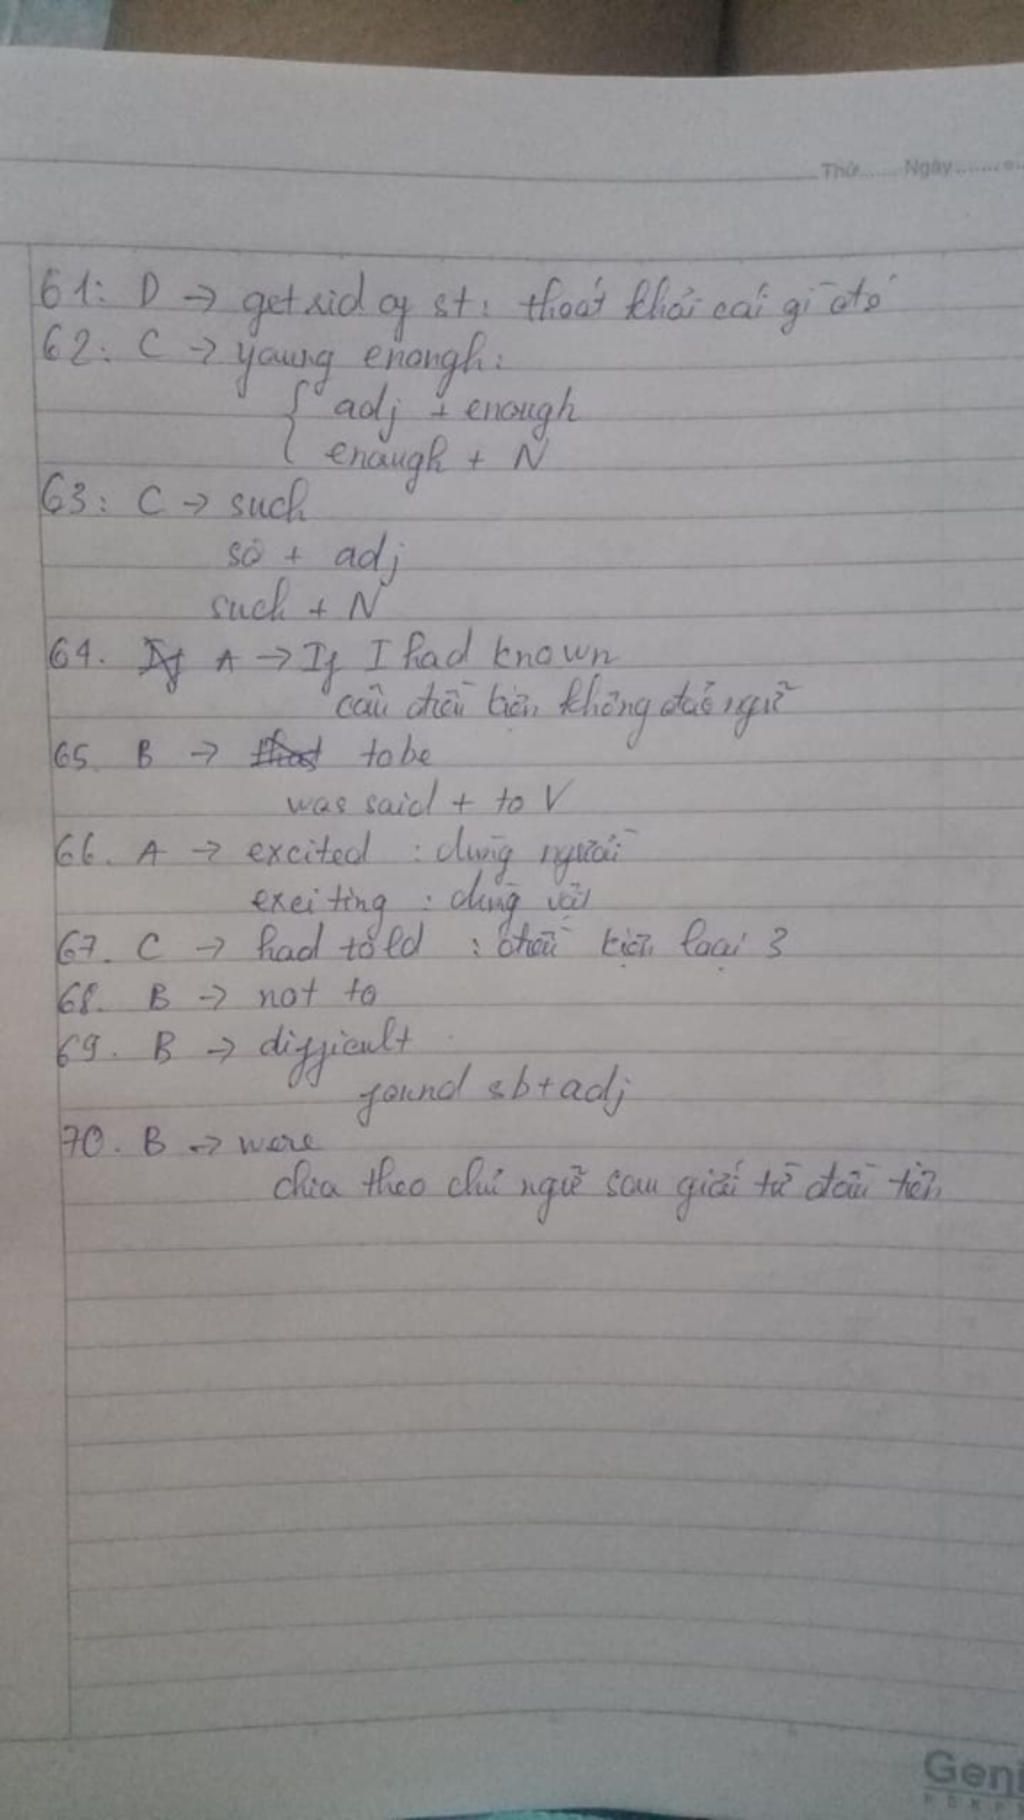 Thứ...... Ngày.........
61: D → get rid of st: thoát khỏi cái gì đó
62: C → young enough:
adj + enough
enough + N
63: C → such
so + adj
such + N
64. A → If I had known
câu điều kiện không đảo ngữ
65. B → to be
was said + to V
66. A → excited : dùng người
exciting : dùng vật
67. C → had told : điều kiện loại 3
68. B → not to
69. B → difficult
found sb + adj
70. B → were
chia theo chủ ngữ sau giới từ đầu tiên
Geni